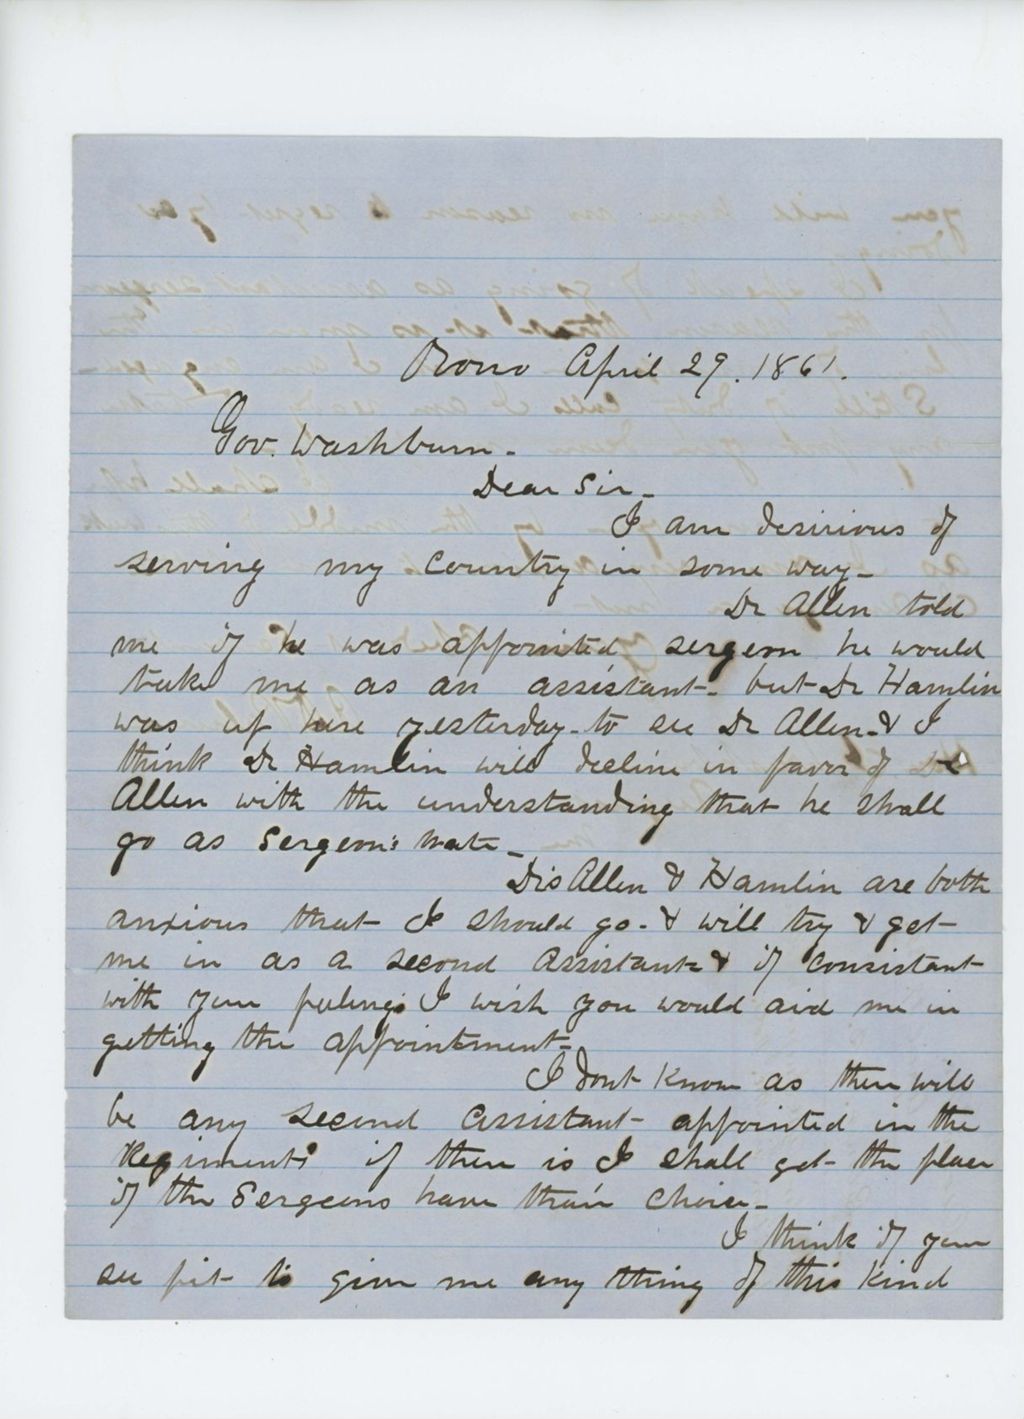 Orono April 29. 1861.
Gov. Washburn.
Dear Sir -
I am desirious of
serving my country in some way -
Dr Allen told
me if he was appointed sergeon he would
take me as an assistant - but Dr Hamlin
was up here yesterday - to see Dr Allen - & I
think Dr Hamlin will decline in favor of Dr
Allen with the understanding that he shall
go as Sergeon's Mate -
Drs Allen & Hamlin are both
anxious that I should go - & will try & get
me in as a second Assistant & if consistant
with your feelings I wish you would aid me in
getting the appointment -
I dont know as there will
be any second assistant appointed in the
Regiment if there is I shall get the place
if the Sergeons have their choice -
I think if you
see fit to give me any thing of this kind